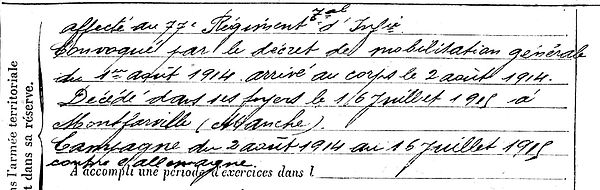 affecté au 77e Régiment Tal d'Infie
Convoqué par le décret de mobilisation générale
du 1er août 1914. arrivé au corps le 2 août 1914.
Décédé dans ses foyers le 16 Juillet 1915 à
Montfarville (Manche).
Campagne du 2 août 1914 au 16 juillet 1915
contre d'allemagne.
A accompli une période d'exercices dans l
ns l'armée territoriale
t dans sa réserve.